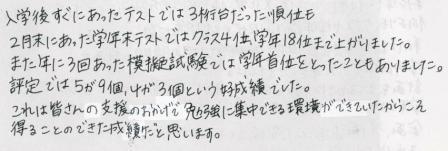 入学後すぐにあったテストでは3桁台だった順位も
2月末にあった学年末テストではクラス4位、学年18位まで上がりました。
また年に3回あった模擬試験では学年首位をとったこともありました。
評定では5が9個、4が3個という好成績でした。
これは皆さんの支援のおかげで勉強に集中できる環境ができていたからこそ
得ることのできた成績だと思います。